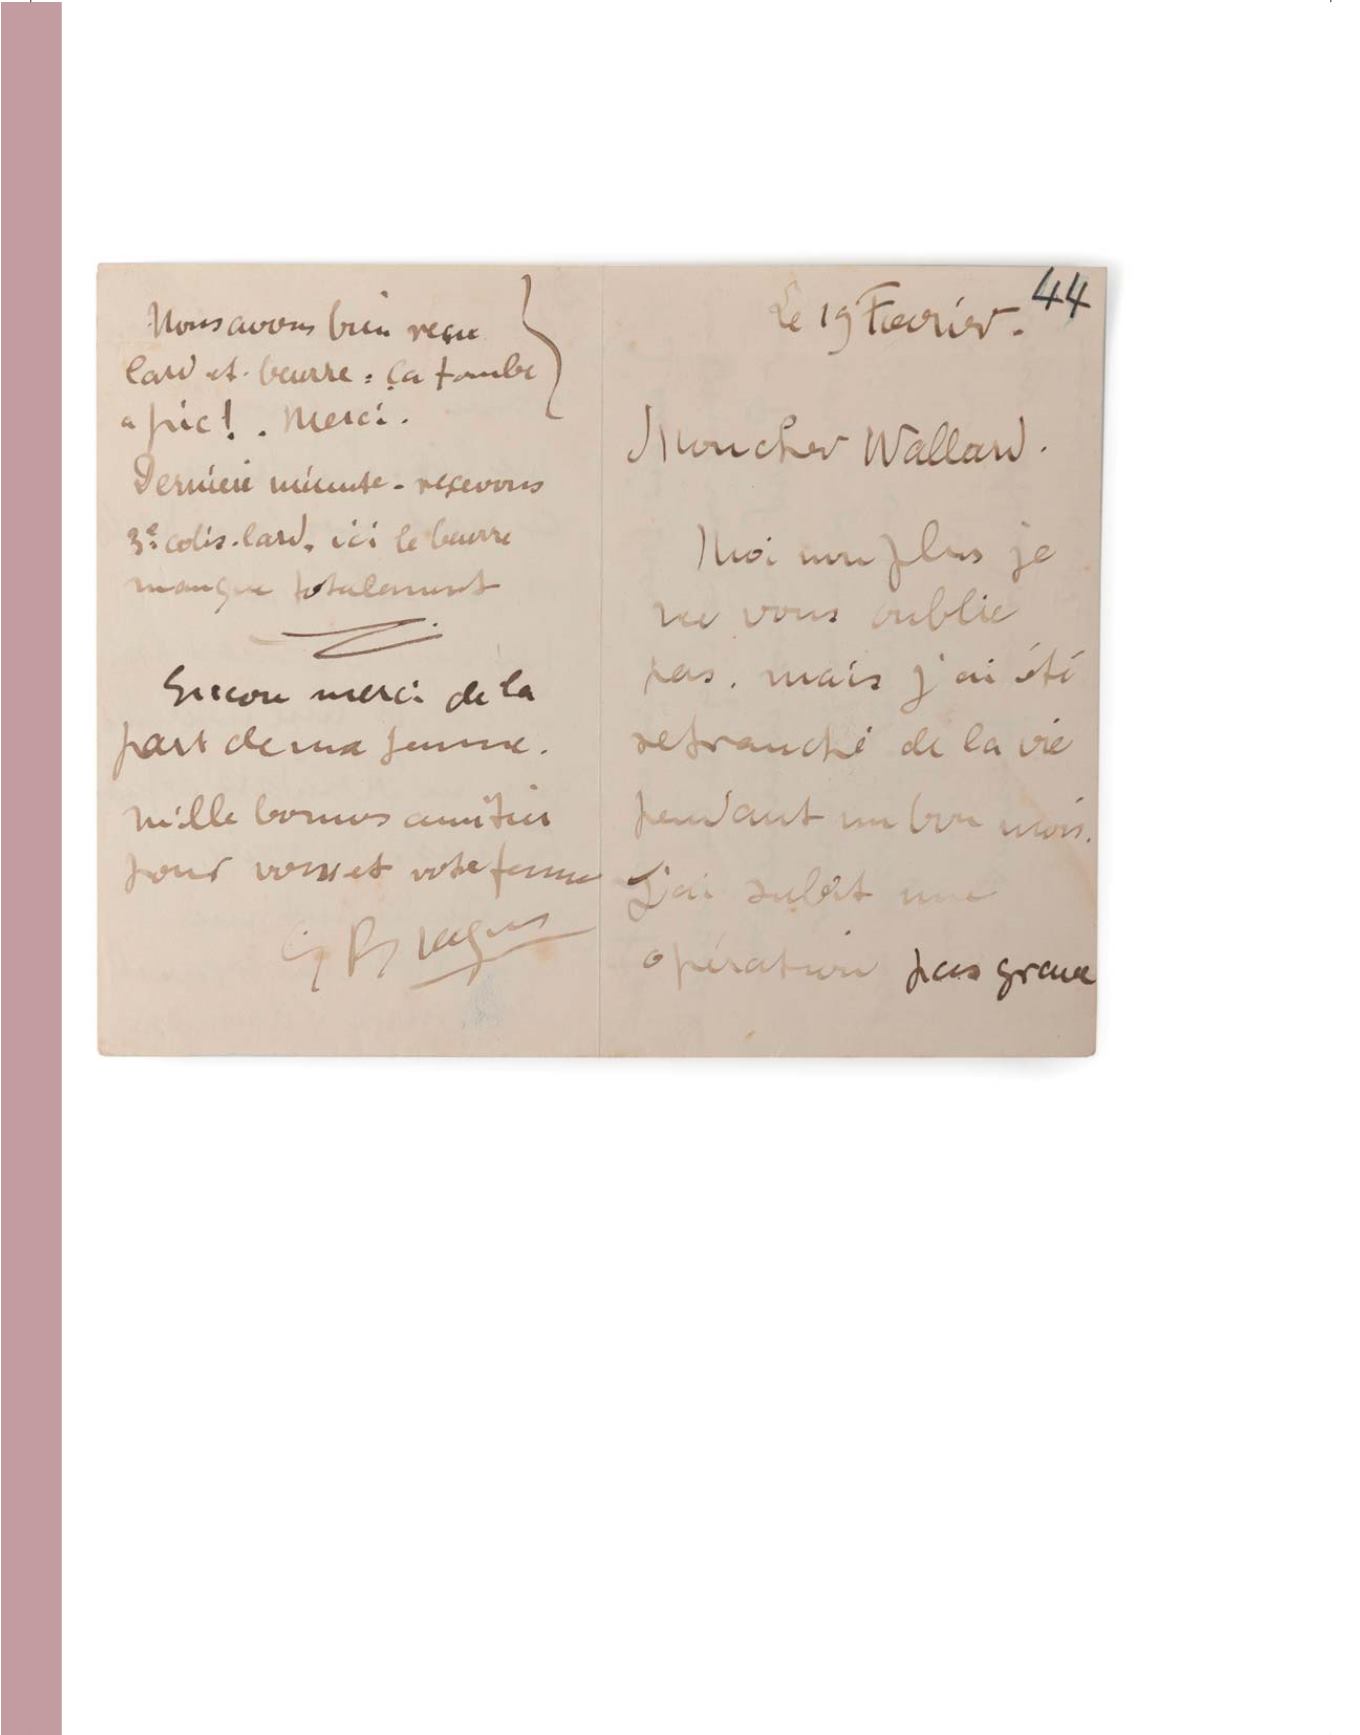 Nous avons bien reçu
lard et beurre : ça tombe
a pic ! . Merci .
Dernière minute - recevons
3e colis lard. ici le beurre
manque totalement
Encore merci de la
part de ma femme .
Mille bonnes amitiés
pour vous et votre femme
Le 19 Fevrier . 44
Mon cher Wallard .
Moi non plus je
ne vous oublie
pas . mais j'ai été
retranché de la vie
pendant un bon mois.
J'ai subit une
opération pas grave